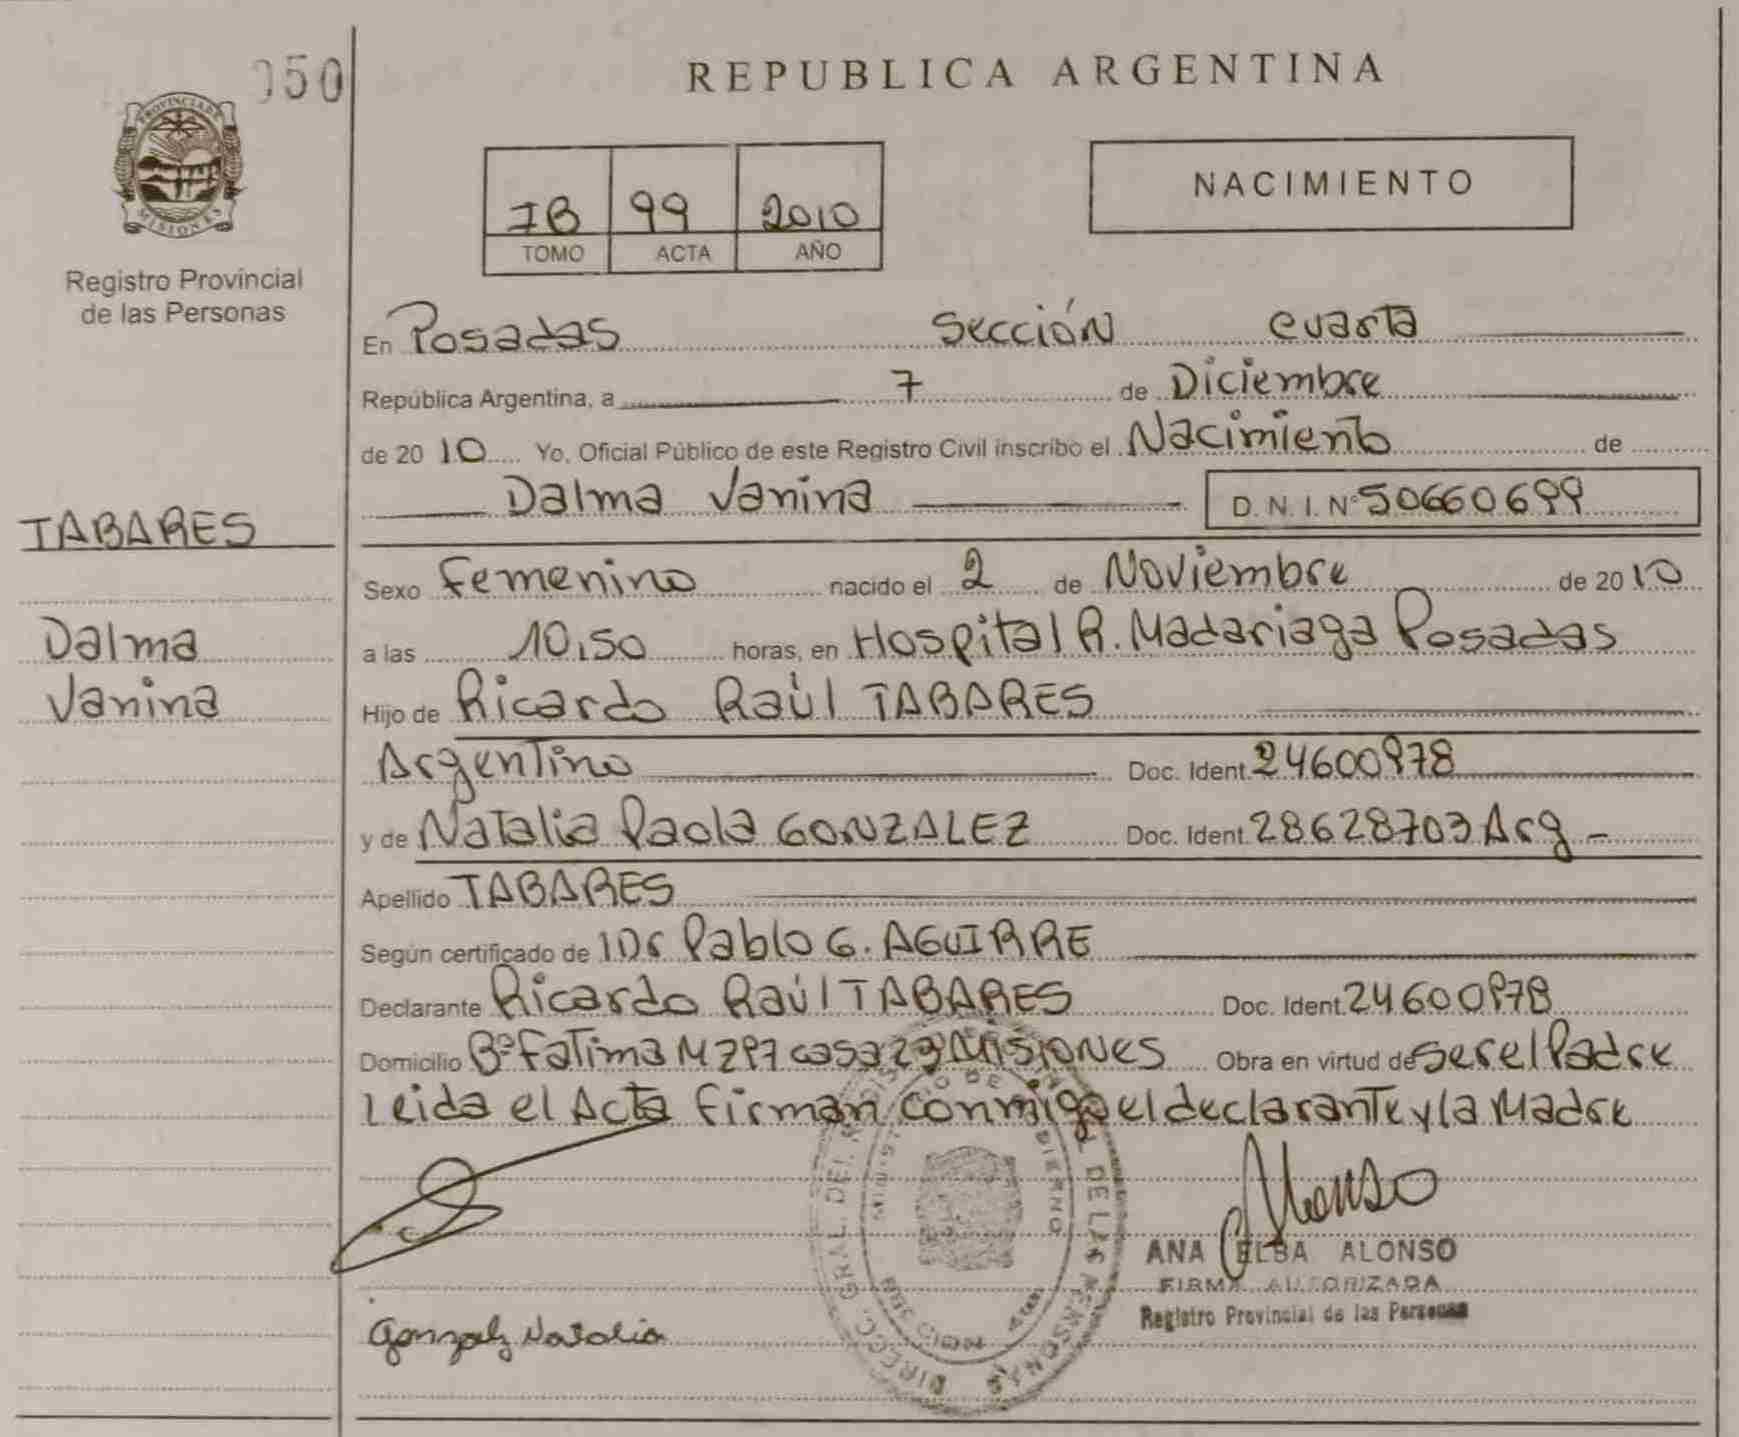 050
REPUBLICA ARGENTINA
PROVINCIA DE
MISIONES
Registro Provincial
de las Personas
7B 99 2010
TOMO ACTA AÑO
NACIMIENTO
En Posadas Sección cuarta
República Argentina, a 7 de Diciembre
de 2010 Yo, Oficial Público de este Registro Civil inscribo el Nacimiento de
Dalma Vanina D. N. I. Nº 50660699
TABARES
Sexo Femenino nacido el 2 de Noviembre de 2010
Dalma
a las 10,50 horas, en Hospital R. Madariaga Posadas
Vanina
Hijo de Ricardo Raúl TABARES
Argentino Doc. Ident. 24600978
y de Natalia Paola GONZALEZ Doc. Ident. 28628703 Arg -
Apellido TABARES
Según certificado de Dr Pablo G. AGUIRRE
Declarante Ricardo Raúl TABARES Doc. Ident. 24600978
Domicilio Bº Fatima M 297 casa 23 Misiones Obra en virtud de ser el Padre
Leida el Acta firman conmigo el declarante y la Madre
Alonso
ANA ELBA ALONSO
FIRMA AUTORIZADA
Registro Provincial de las Personas
Gonzalz Natalia
DIRECC. GRAL. DEL DE LAS PERSONAS